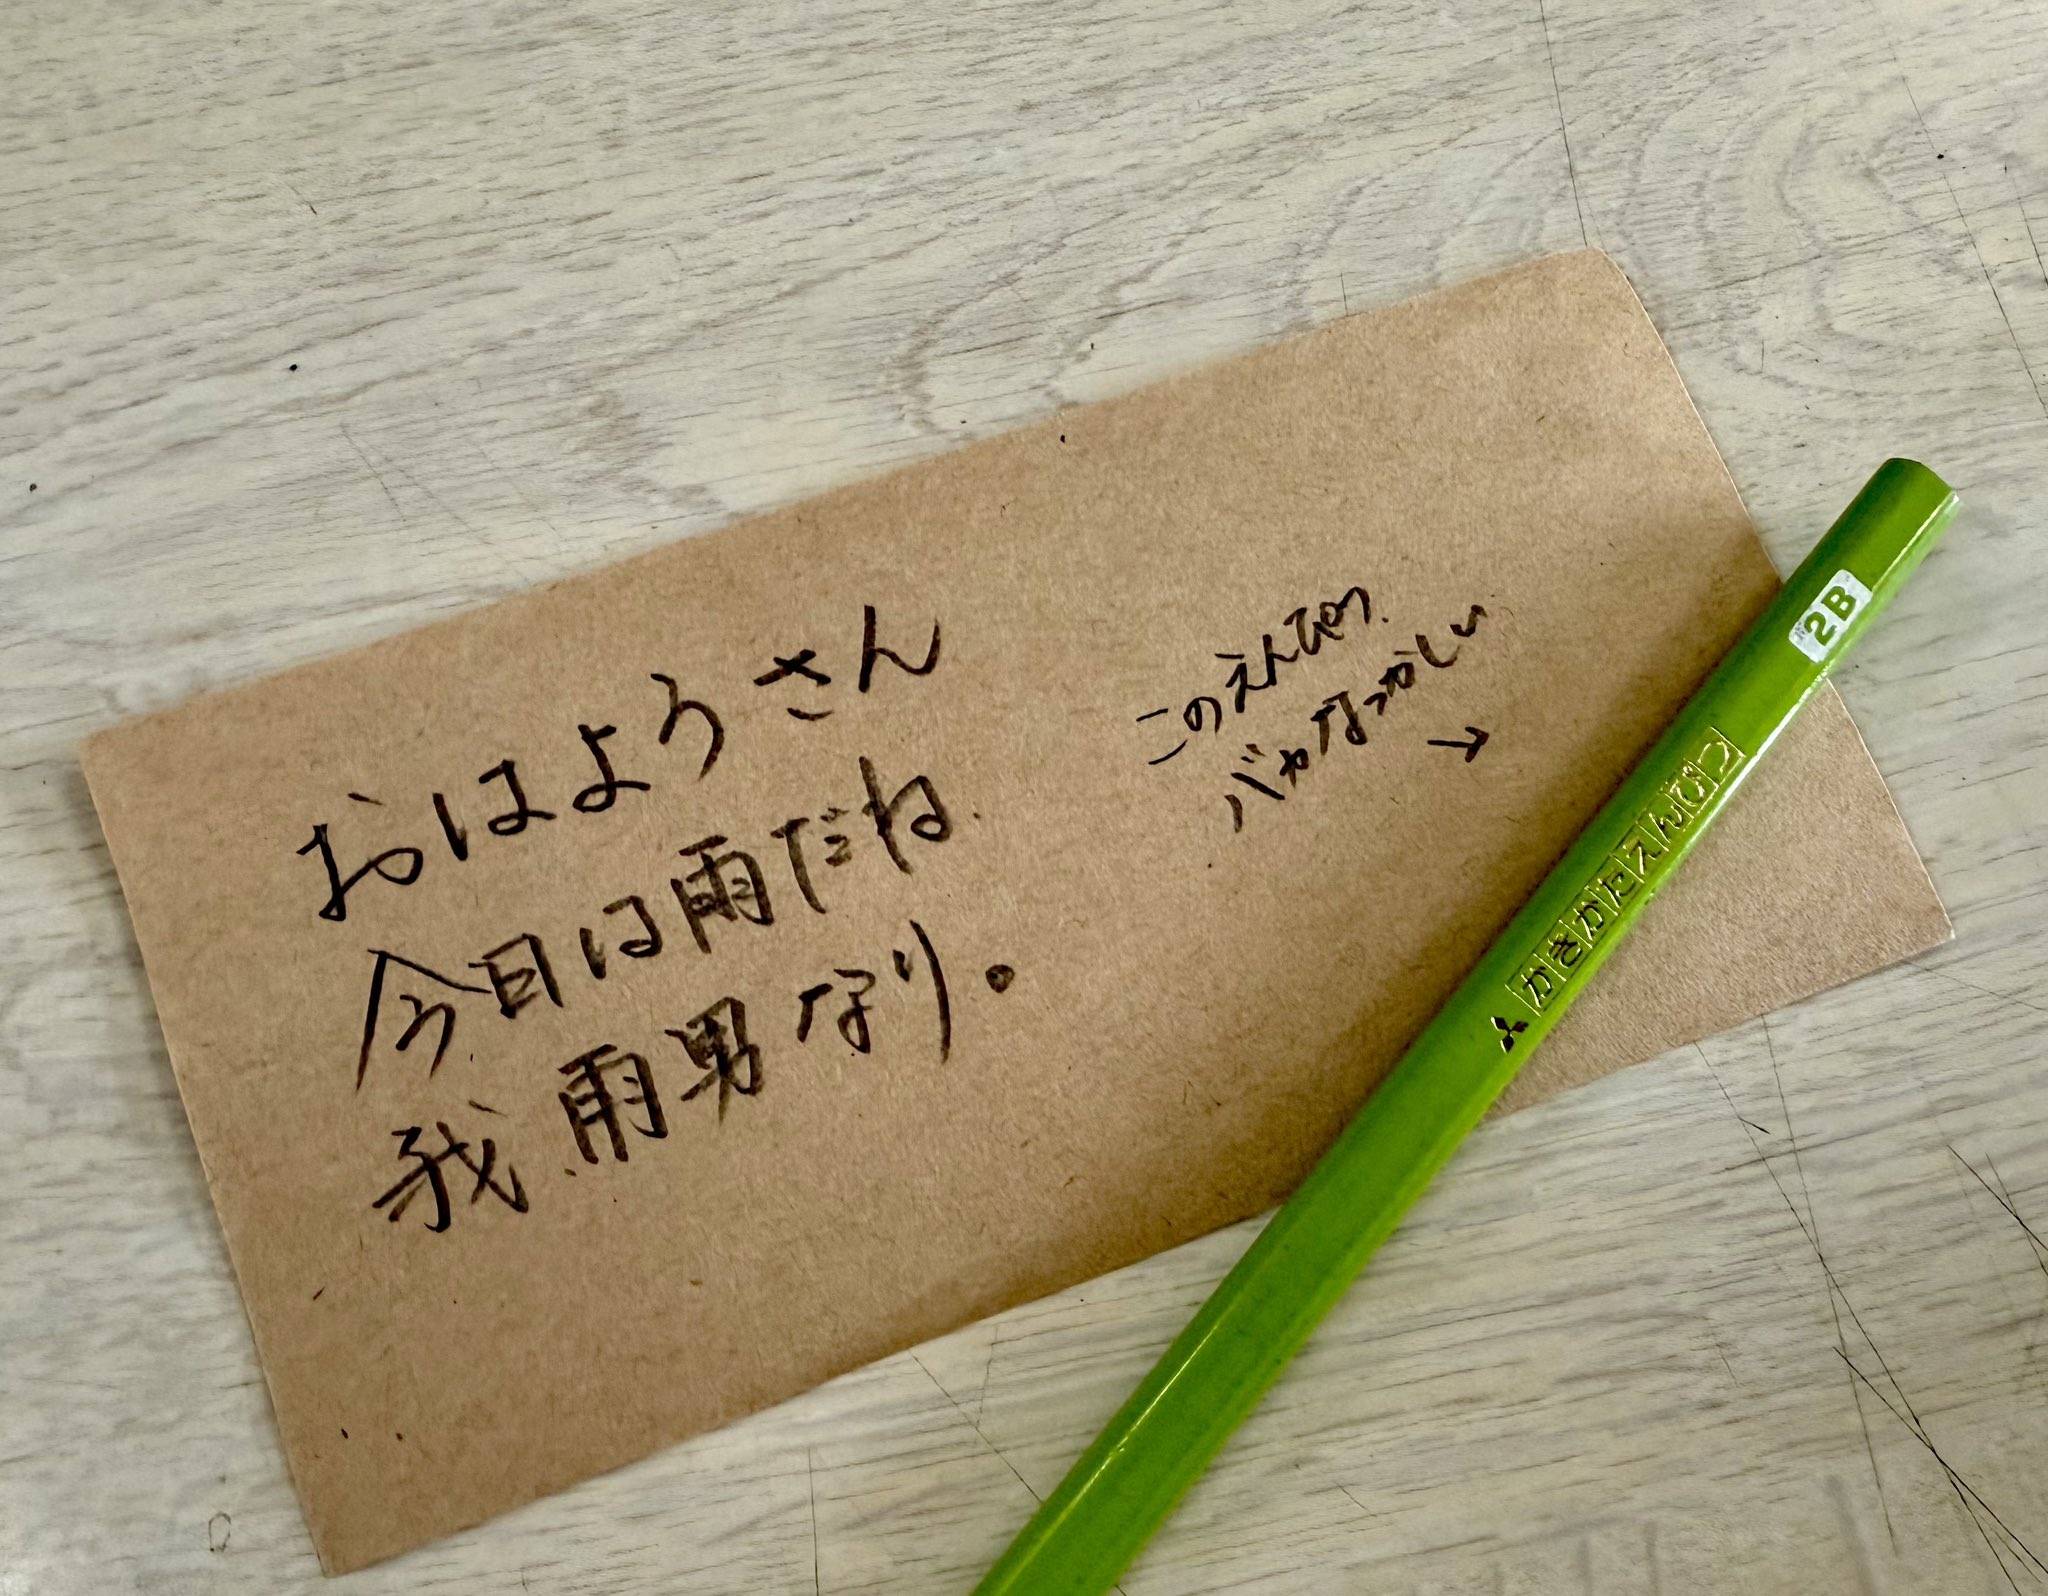 おはようさん
今日は雨だね
我 雨男なり。
このえんぴつ
がなつかしい
→
2B
かきかたえんぴつ